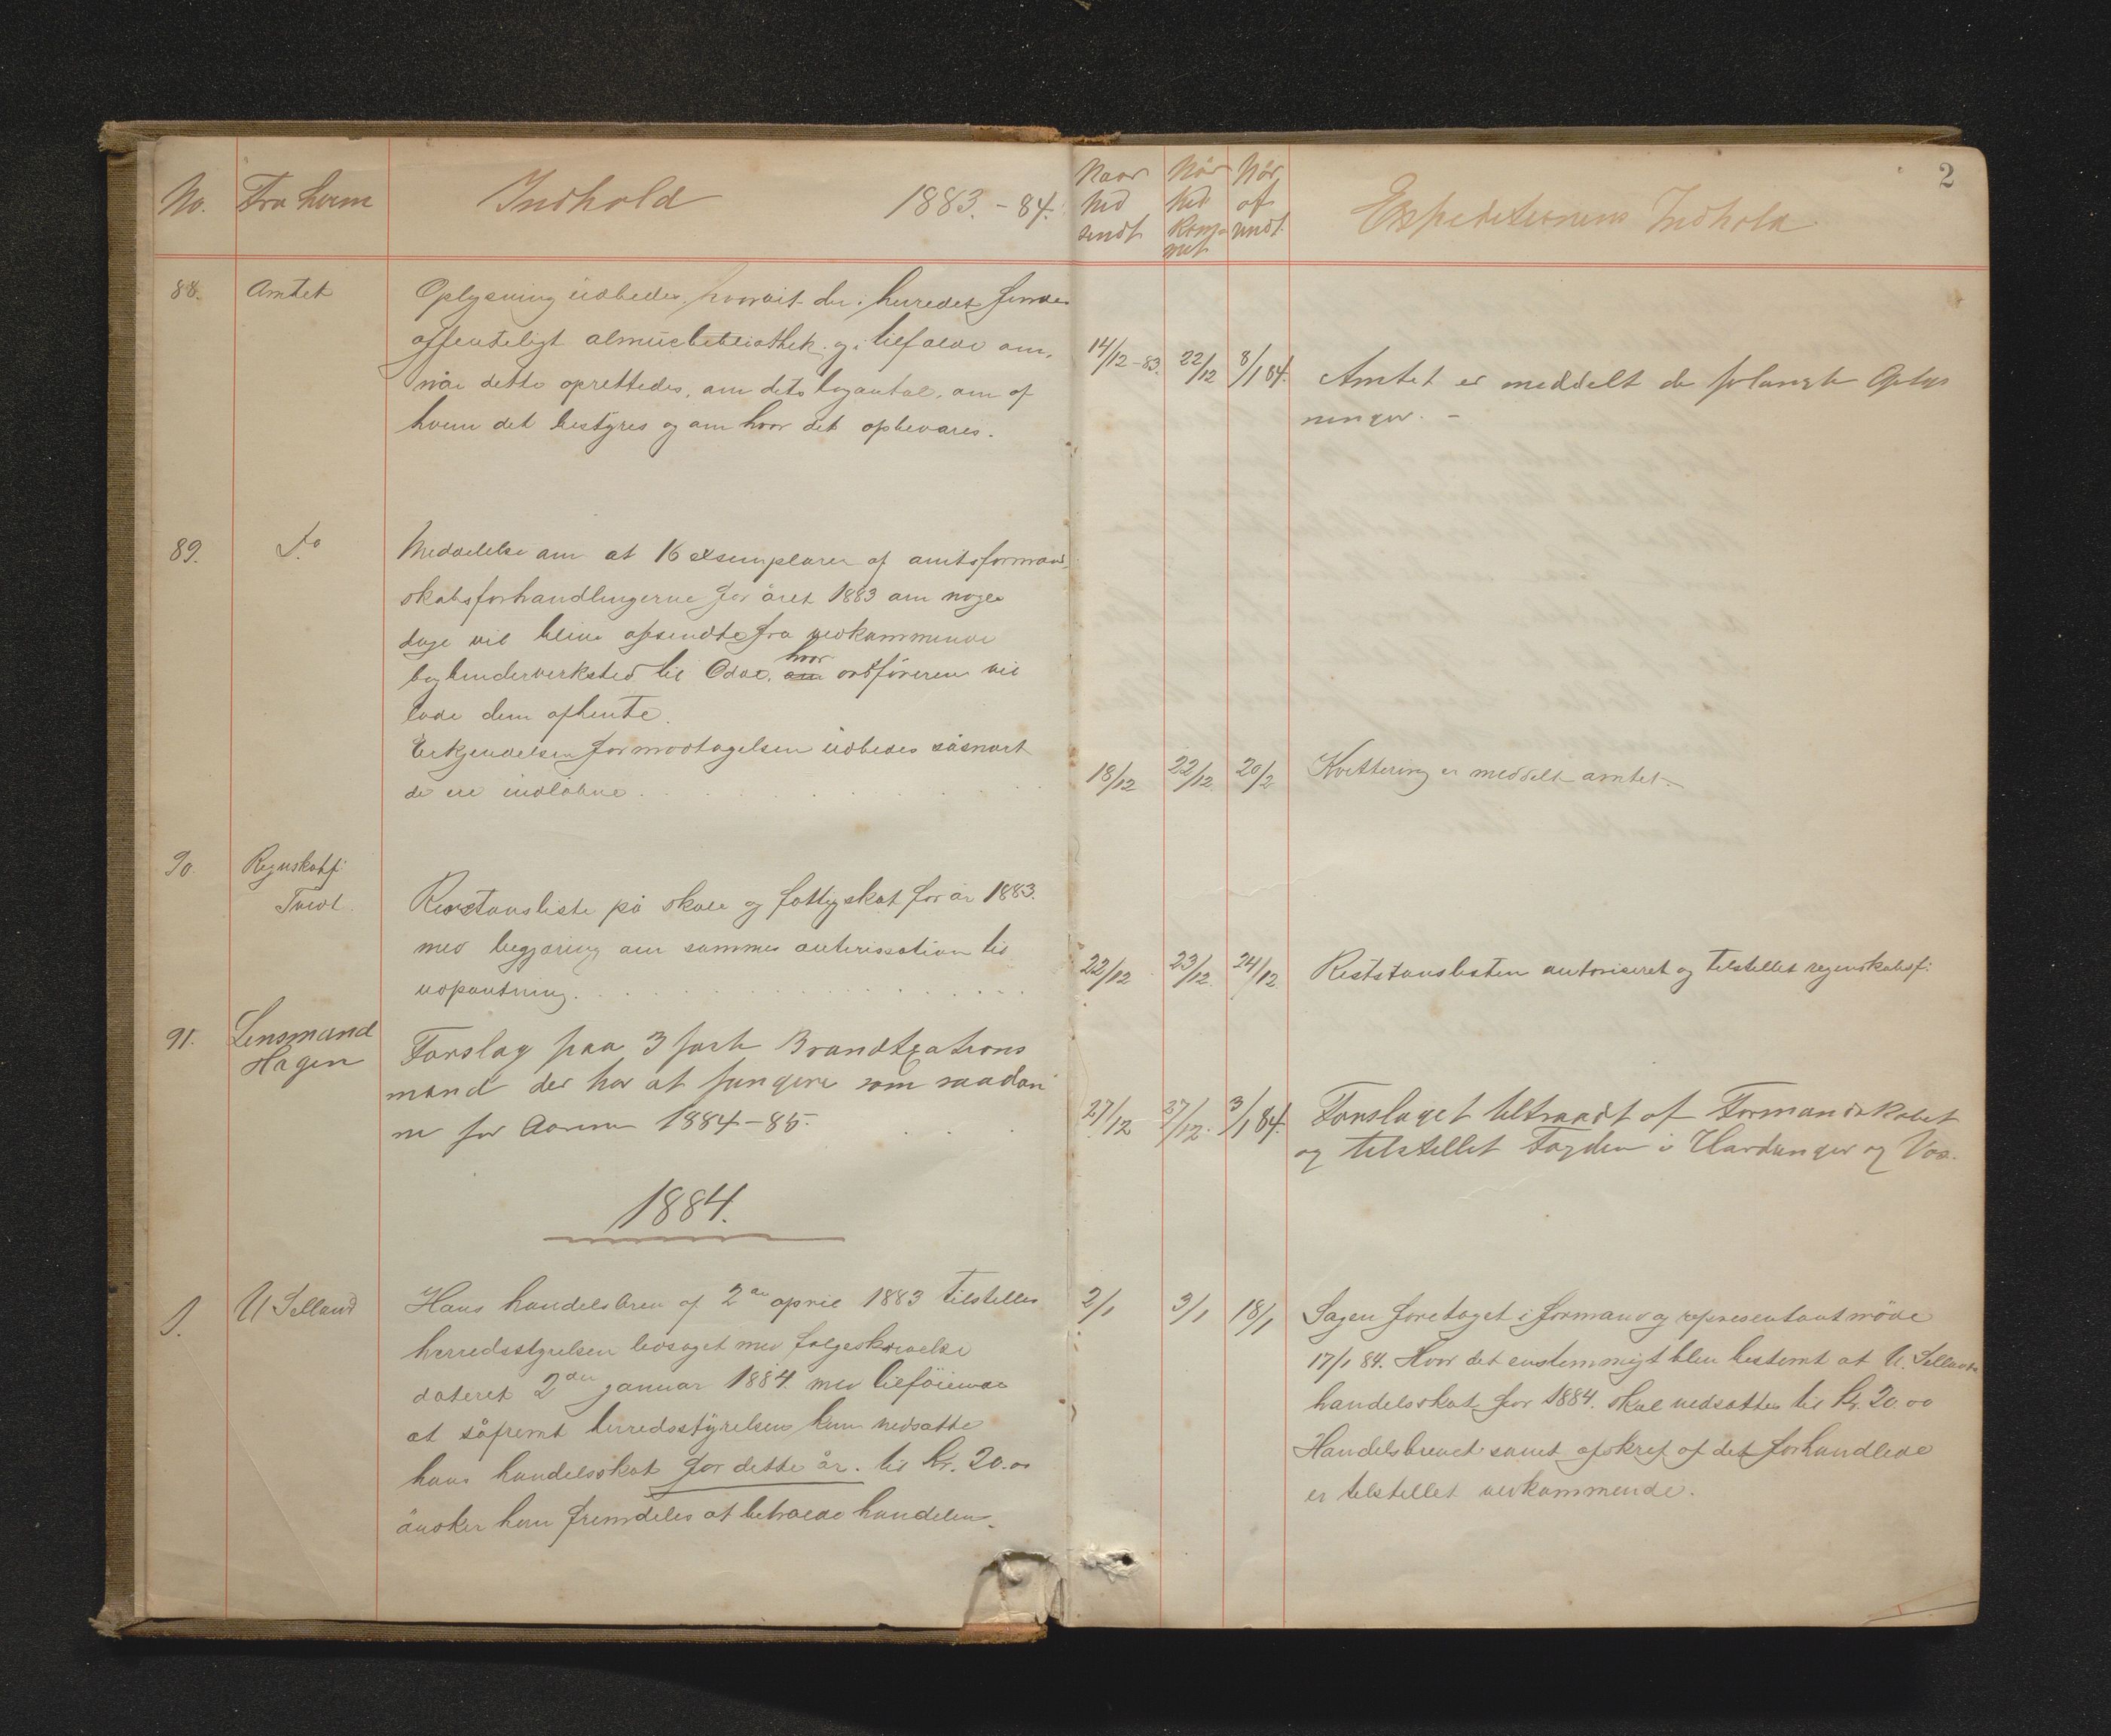 2
No. Fra hvem Indhold 1883. - 84.
Naar ned sendt
Når ned kommet
Når af sendt
Expeditionens Indhold
88. Amtet
Oplysning udbedes hvorvit der i herredet findes
offentligt almuebibliothek og i tilfælde om,
når dette oprettedes, om dets bogantal, om af
hvem det bestyres og om hvor det opbevares.
14/12-83. 22/12 8/1 84.
Amtet er meddelt de forlangte Oplys
ninger. -
89. Do
Meddelelse om at 16 exemplarer af amtsformand-
skabsforhandlingerne for året 1883 om nogle
dage vil blive afsendte fra vedkommende
bogbinderverksted til Odde, om hvor ordføreren vil
lade dem afhente.
Erkjendelsen for modtagelsen udbedes såsnart
de ere indløbne . . .
18/12 22/12 20/2
Kvittering er meddelt amtet.
90. Regnskabsf:
Tveit.
Restansliste på skole og fattigskat for år 1883.
med begjæring om sammes autorisation til
udpantning. . . .
22/12 23/12 24/12
Reststanslisten autoriseret og tilstillet regnskabsf:
91. Lensmand
Hagen
Forslag paa 3 faste Brandtaxtions
mænd der har at fungere som saadan
ne for Aarene 1884-85.
27/12 27/12. 3/1 84.
Forslaget tiltraadt af Formandskabet
og tilstillet Fogden i Hardanger og Vos.
1884.
1. U Selland
Hans handelsbrev af 2den april 1883 tilstilles
herredsstyrelsen ledsaget med følgeskrivelse
dateret 2den januar 1884. med tilføiende
at såfremt herredsstyrelsen kun nedsætte
hans handelsskat for dette år. til Kr. 20.00
ønsker han fremdeles at beholde handelen.
2/1 3/1 18/1
Sagen foretaget i formand og representantmøde
17/1 84. Hvor det enstemmigt blev bestemt at U. Sellands
handelsskat for 1884. skal nedsættes til Kr. 20.00
Handelsbrevet samt afskrift af det forhandlede
er tilstillet vedkommende.